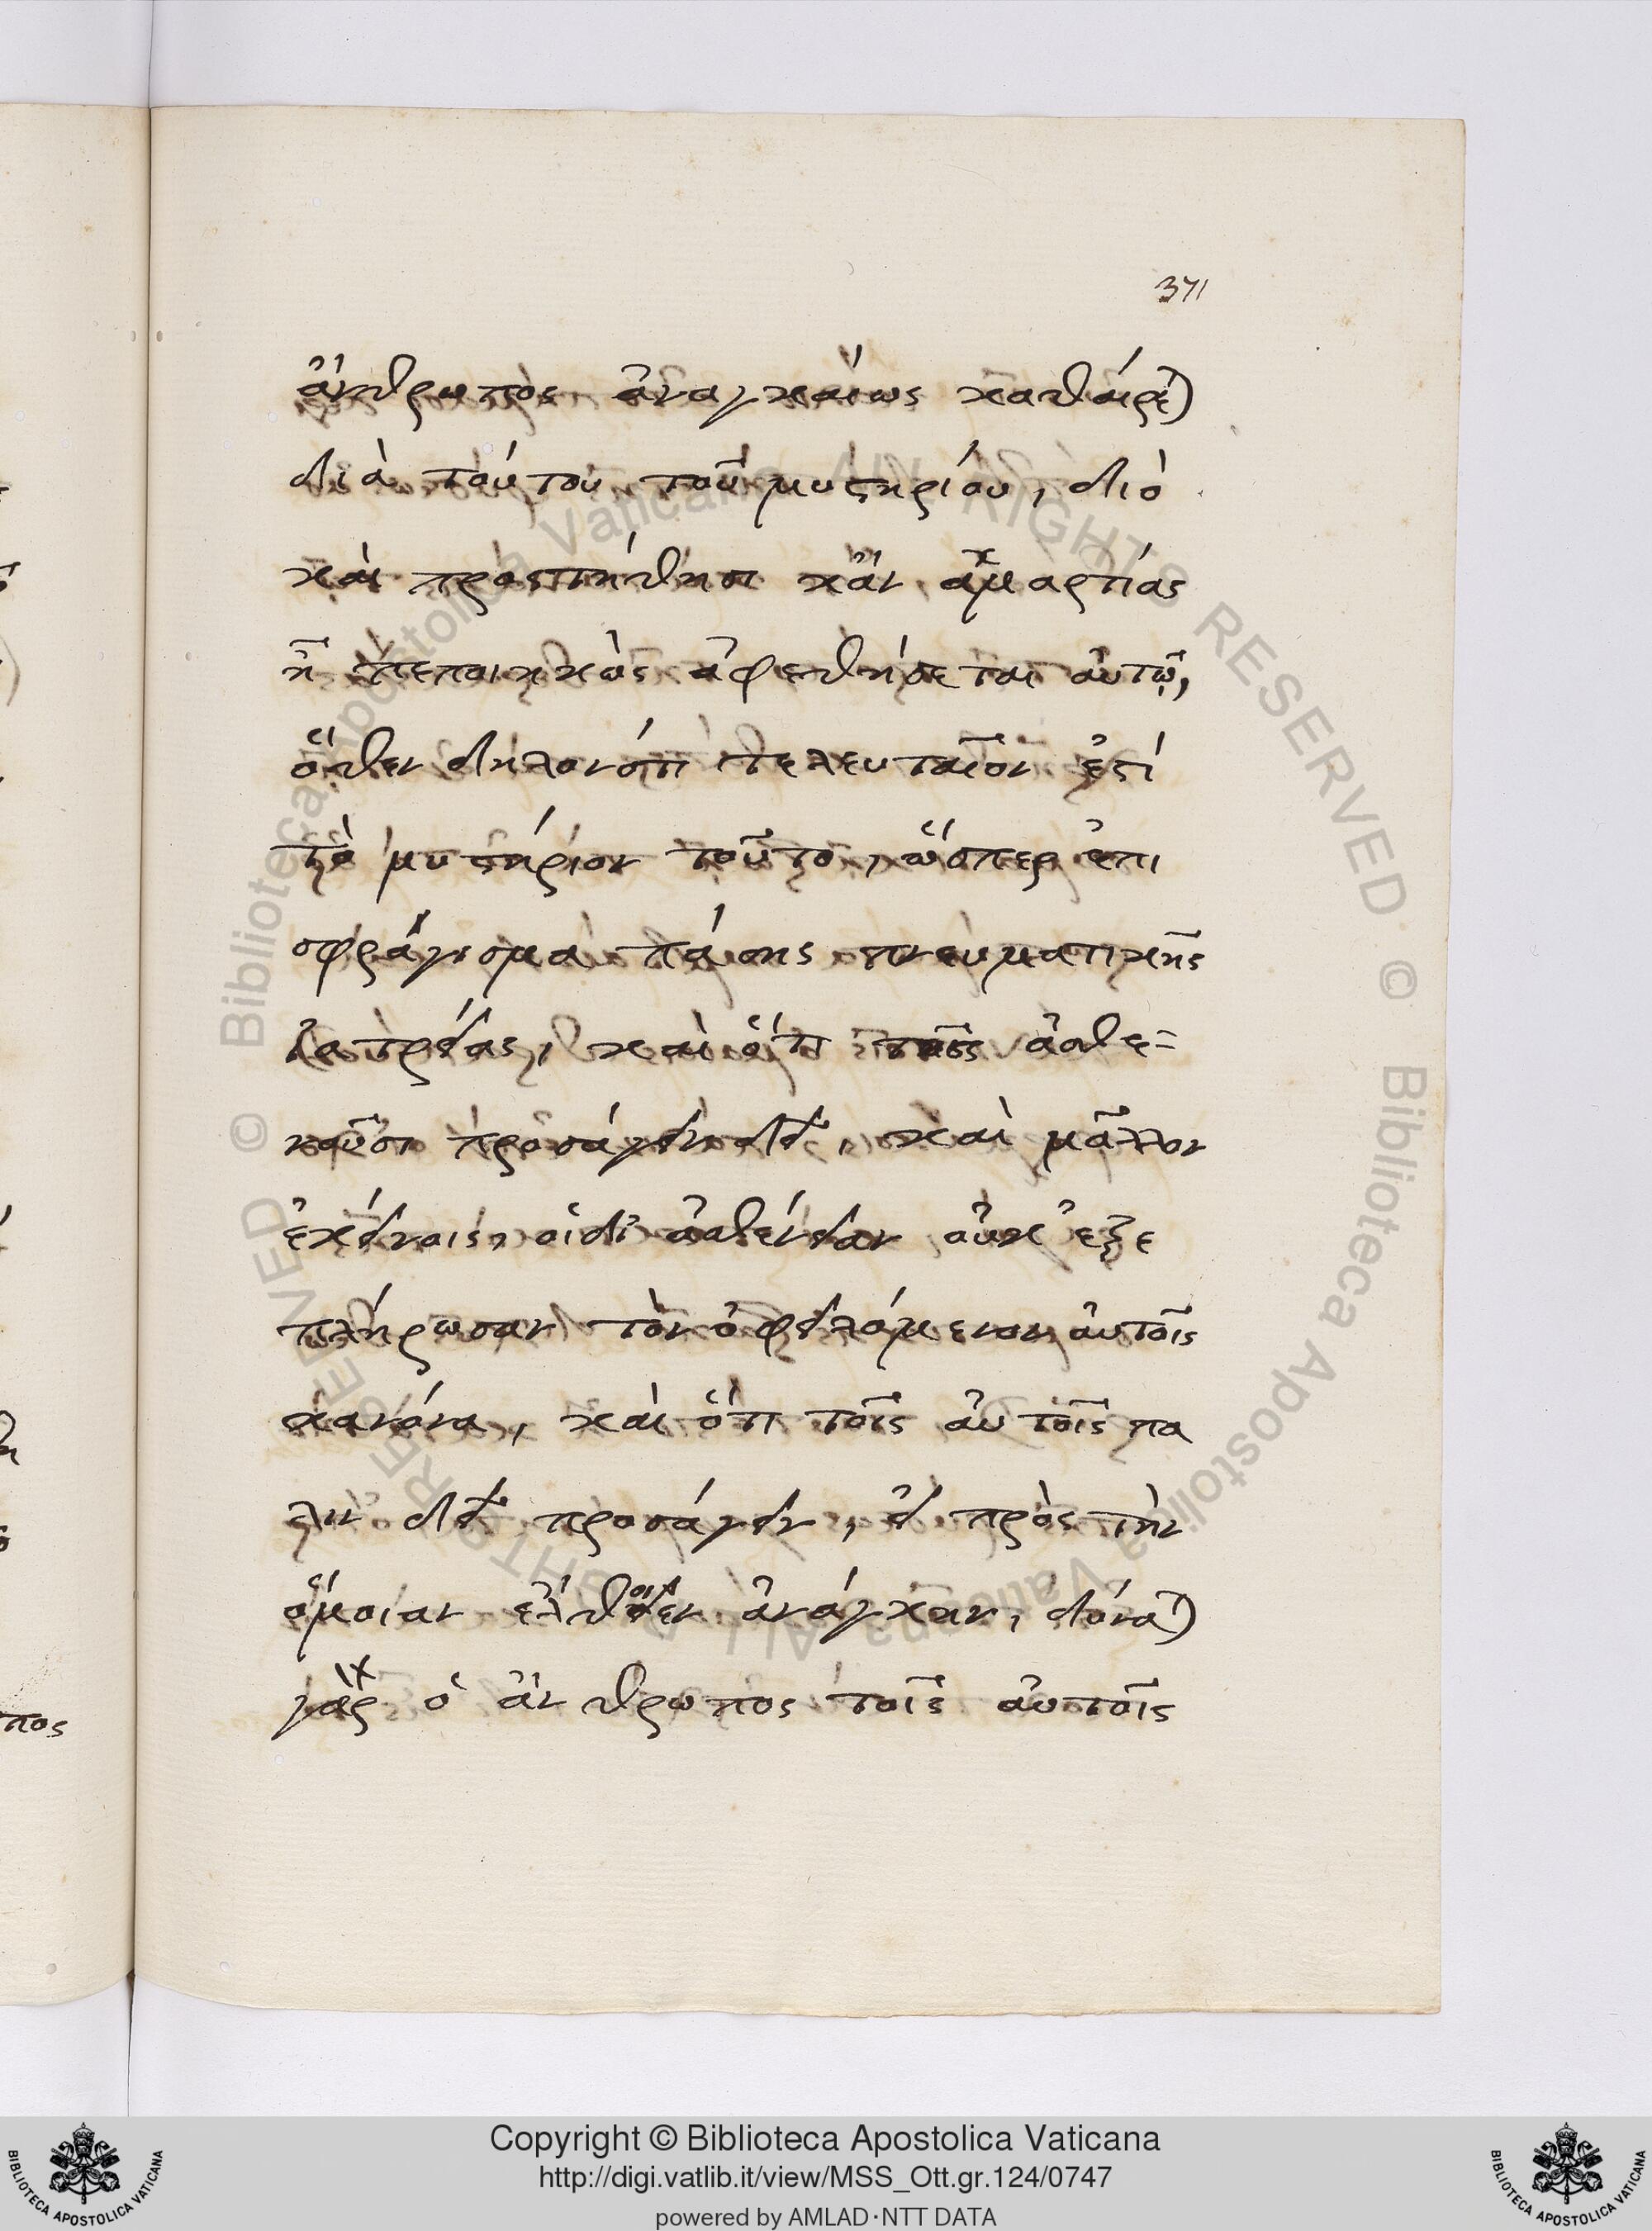 371
ἄνθρωπος ἀναγκαίως καθαίρε)
διὰ τούτου τοῦ μυστηρίου, διὸ
καὶ προστιθησι κἂν ἁμαρτίας
ἦ πεποιηκὼς ἀφεθήσεται αὐτῷ,
ὅθεν δηλονότι τελευταῖον ἐστί
τὸ μυστήριον τοῦτο, ὥσπερ ἐπι
σφράγισμα πάσης πνευματικῆς
ἰατρείας, καὶ ὅτι τοῖς ἀσθε=
νοῦσι προσάγειν δεῖ, καὶ μᾶλλον
ἐκείνοις, οἱ δι' ἀσθένειαν οὐκ ἐξε
πλήρωσαν τὸν ὀφειλόμενον αὐτοῖς
κανόνα, καὶ ὅτι τοῖς αὐτοῖς πα
λιν δεῖ προσάγειν, εἰ πρὸς τὴν
ὅμοιαν ἔλθοιεν ἀνάγκην, δύνα)
γὰρ ὁ ἄνθρωπος τοῖς αὐτοῖς
πος
Biblioteca Apostolica Vaticana ALL RIGHTS RESERVED © Biblioteca Apostolica Vaticana ALL RIGHTS RESERVED ©
Copyright © Biblioteca Apostolica Vaticana
http://digi.vatlib.it/view/MSS_Ott.gr.124/0747
powered by AMLAD·NTT DATA
BIBLIOTECA APOSTOLICA VATICANA
BIBLIOTECA APOSTOLICA VATICANA